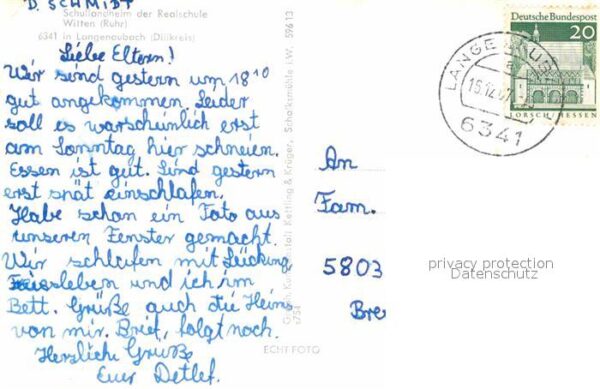 D. SCHMIDT
Schullandheim der Realschule
Witten (Ruhr)
6341 in Langenaubach (Dillkreis)
Liebe Eltern!
Wir sind gestern um 18¹⁰
gut angekommen. Leider
soll es warscheinlich erst
am Sonntag hier schneien.
Essen ist gut. Sind gestern
erst spät einschlafen.
Habe schon ein Foto aus
unseren Fenster gemacht.
Wir schlafen mit Lücking
leben und ich im
Bett. Grüße auch die Heime
von mir. Brief, folgt noch.
Herzliche Grüße
Euer Detlef.
Schark­smühle i.W. 596 13
Kettling & Krüger,
ECHT FOTO
Deutsche Bundespost
20
LORSCH/HESSEN
15.12.67
6341
An
Fam.
5803
Bre
privacy protection
Datenschutz